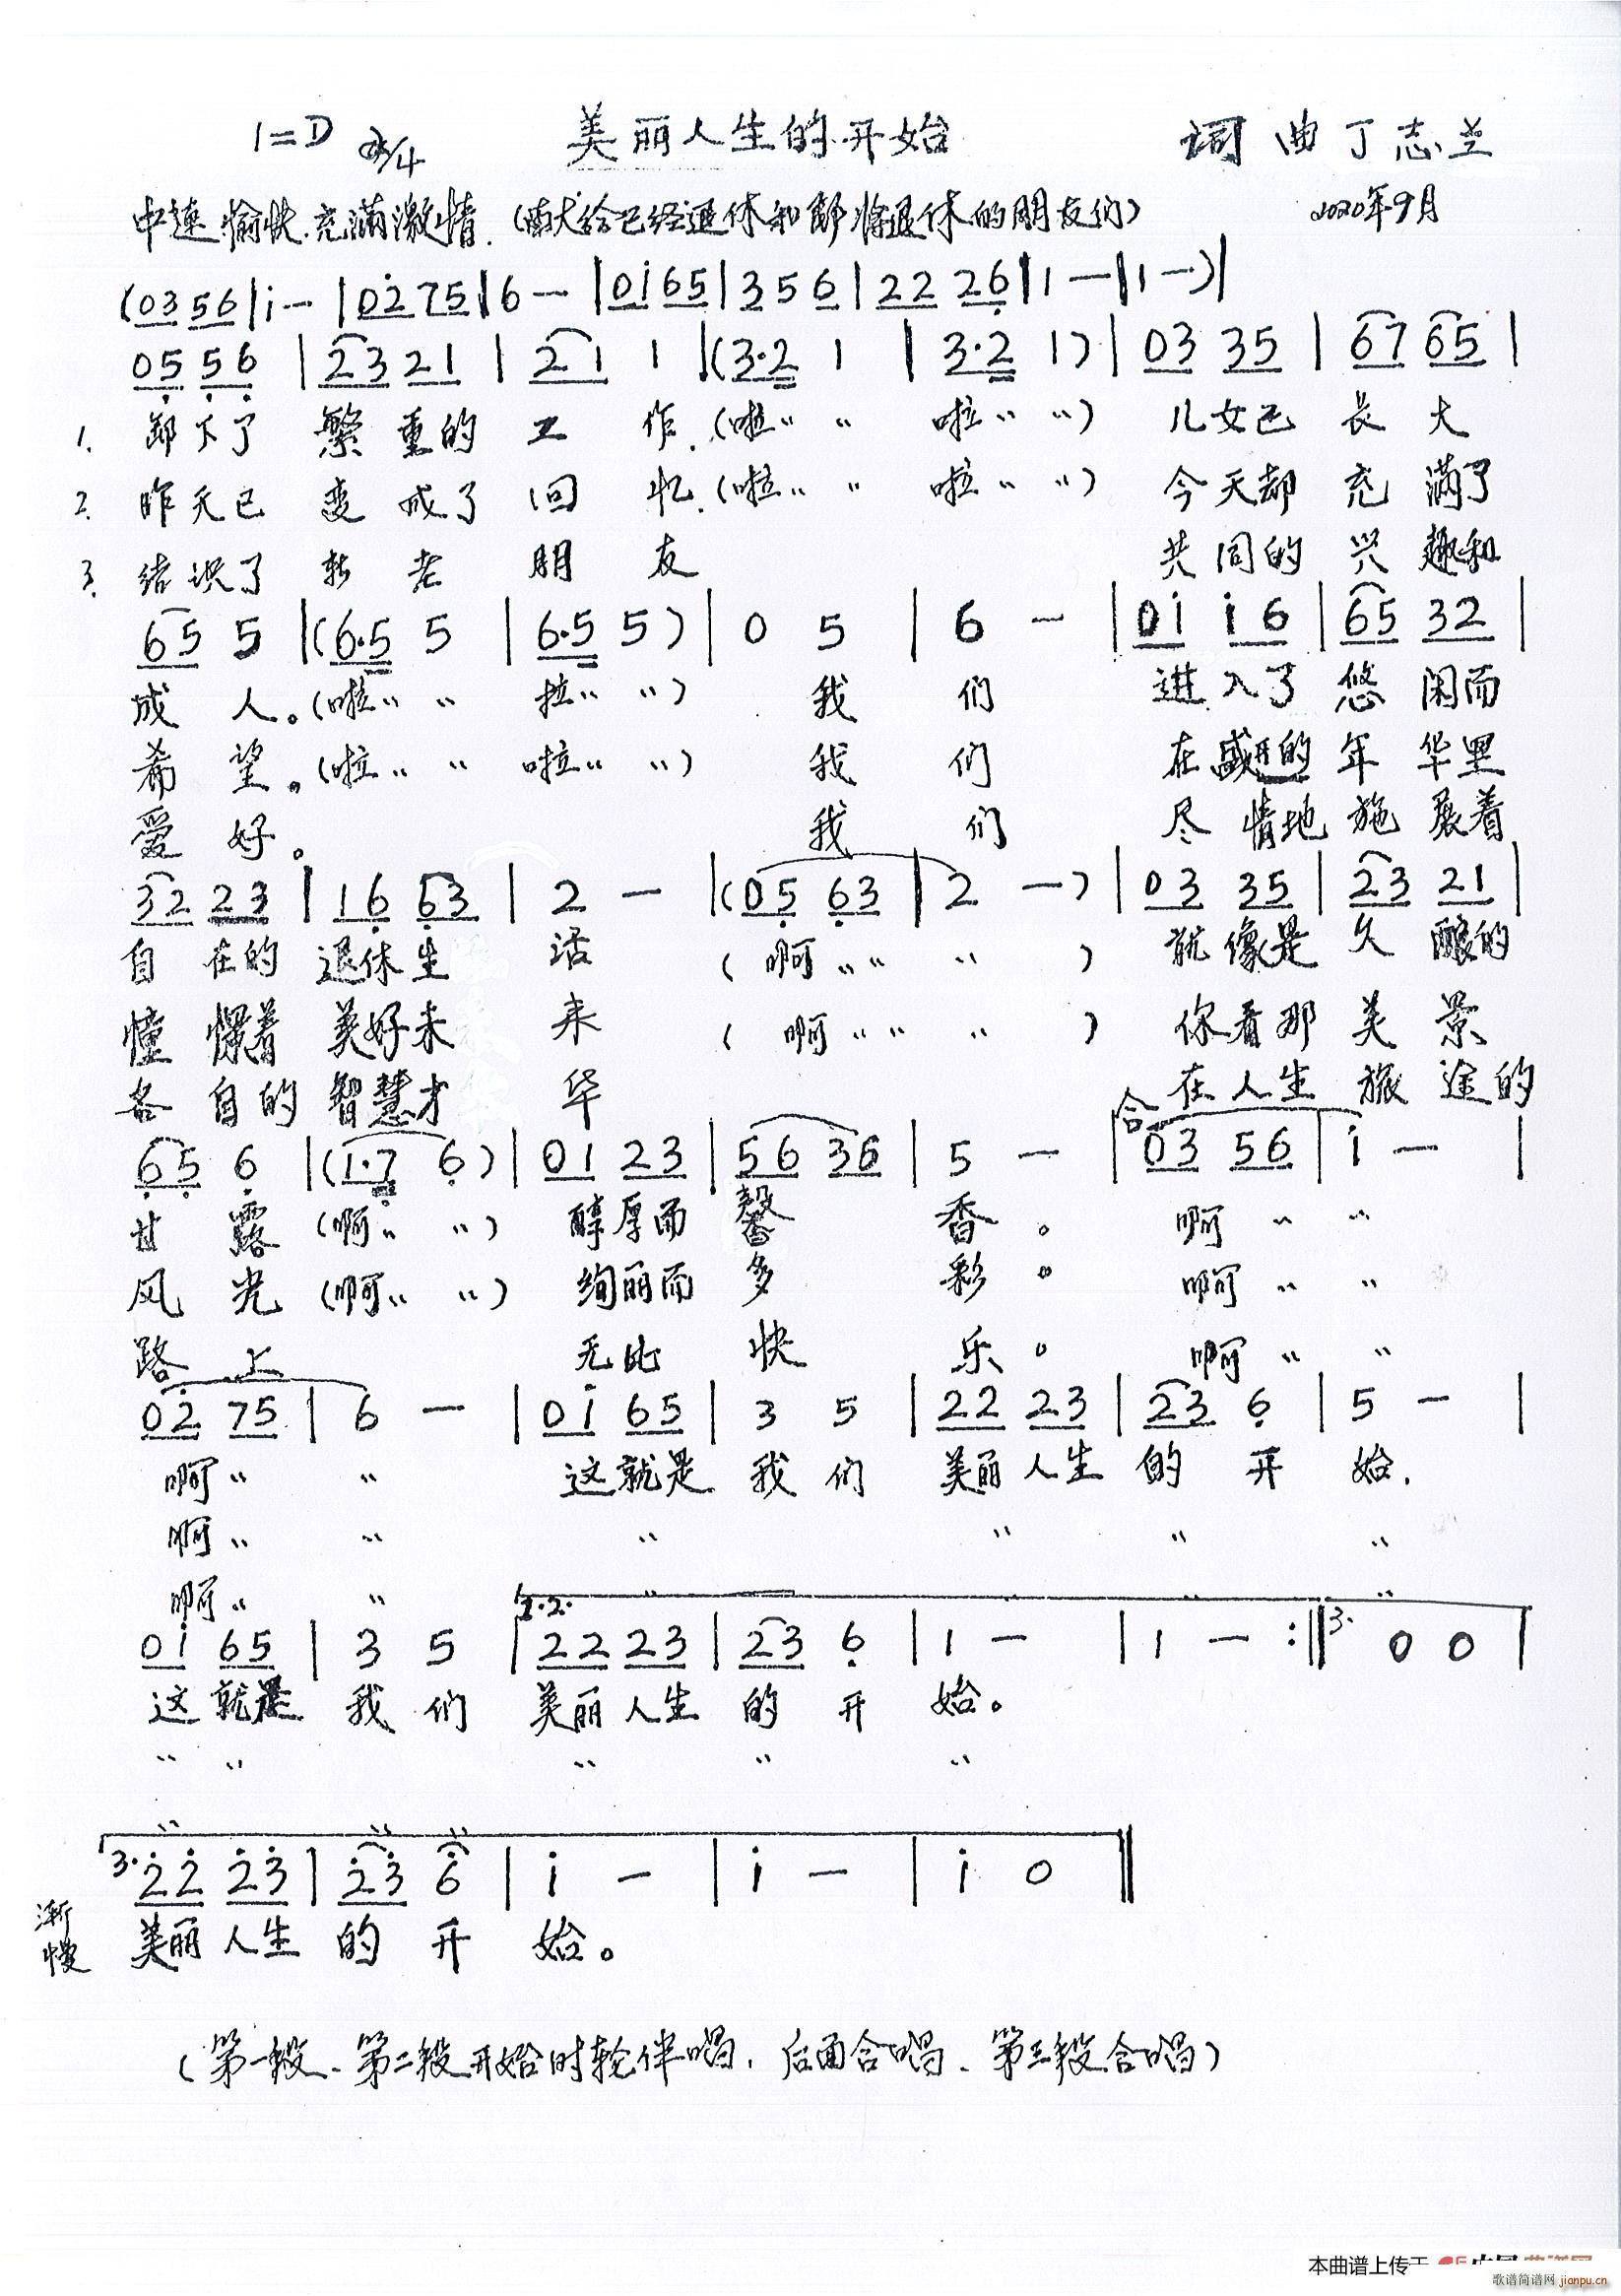 1=D 2/4 美丽人生的开始 词曲 丁志兰
中速 愉快.充满激情.(献给已经退休和即将退休的朋友们) 2020年9月
(03 56 | i - | 02 75 | 6 - | 0i 65 | 3 5 6 | 22 26 | 1 - | 1 -) |
05 56 | 23 21 | 2 1 1 | (3·2 1 | 3·2 1) | 03 35 | 67 65 |
1. 卸下了 繁重的 工作.(啦〃 〃 啦〃 〃) 儿女已 长大
2. 昨天已 变成了 回忆.(啦〃 〃 啦〃 〃) 今天却 充满了
3. 结识了 新老 朋友 共同的 兴趣和
65 5 | (6·5 5 | 6·5 5) | 0 5 | 6 - | 0i i6 | 65 32 |
成人。(啦〃 〃 拉〃 〃) 我们 进入了 悠闲而
希望。(啦〃 〃 啦〃 〃) 我们 在盛开的 年华里
爱好。 我们 尽情地 施展着
32 23 | 16 63 | 2 - | (05 63 | 2 -) | 03 35 | 23 21 |
自在的 退休生活 (啊〃〃 〃) 就像是 久酿的
憧憬着 美好未来 (啊〃〃 〃) 你看那 美景
各自的 智慧才华 在人生 旅途的
合
65 6 | (1·7 6) | 01 23 | 56 36 | 5 - | 03 56 | i - |
甘露 (啊〃 〃) 醇厚而 馨香。 啊〃 〃
风光 (啊〃 〃) 绚丽而 多彩。 啊〃 〃
路上 无比 快乐。 啊〃 〃
02 75 | 6 - | 0i 65 | 3 5 | 22 23 | 23 6 | 5 - |
啊〃 〃 这就是 我们 美丽人生 的开始.
啊〃 〃 〃 〃 〃 〃
啊〃 〃 〃 〃 〃
0i 65 | 3 5 | 1.2. 22 23 | 23 6 | 1 - | 1 - :| 3. 0 0 |
这就是 我们 美丽人生 的开始。
〃 〃 〃 〃 〃
〃 〃 〃
3. 22 23 | 23 6 | i - | i - | i 0 ||
渐慢 美丽人生 的开始。
(第一段、第二段开始时轮伴唱,后面合唱、第三段合唱)
本曲谱上传于
歌谱简谱网 jianpu.cn